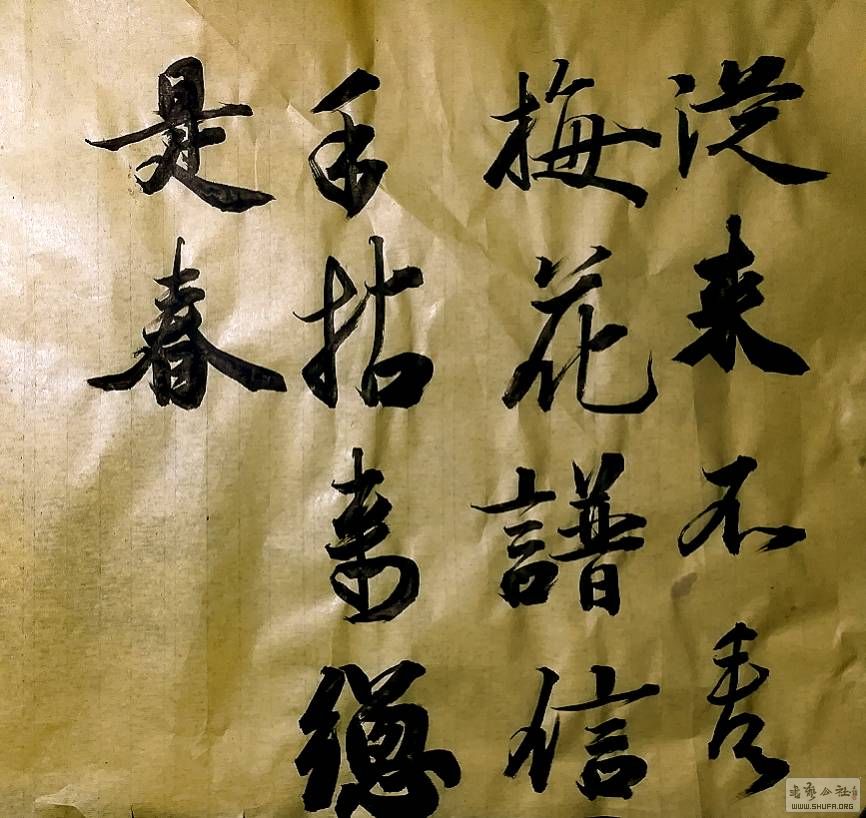 從来不看
梅花譜信
手拈來總
是春
书艺公社
WWW.SHUFA.ORG